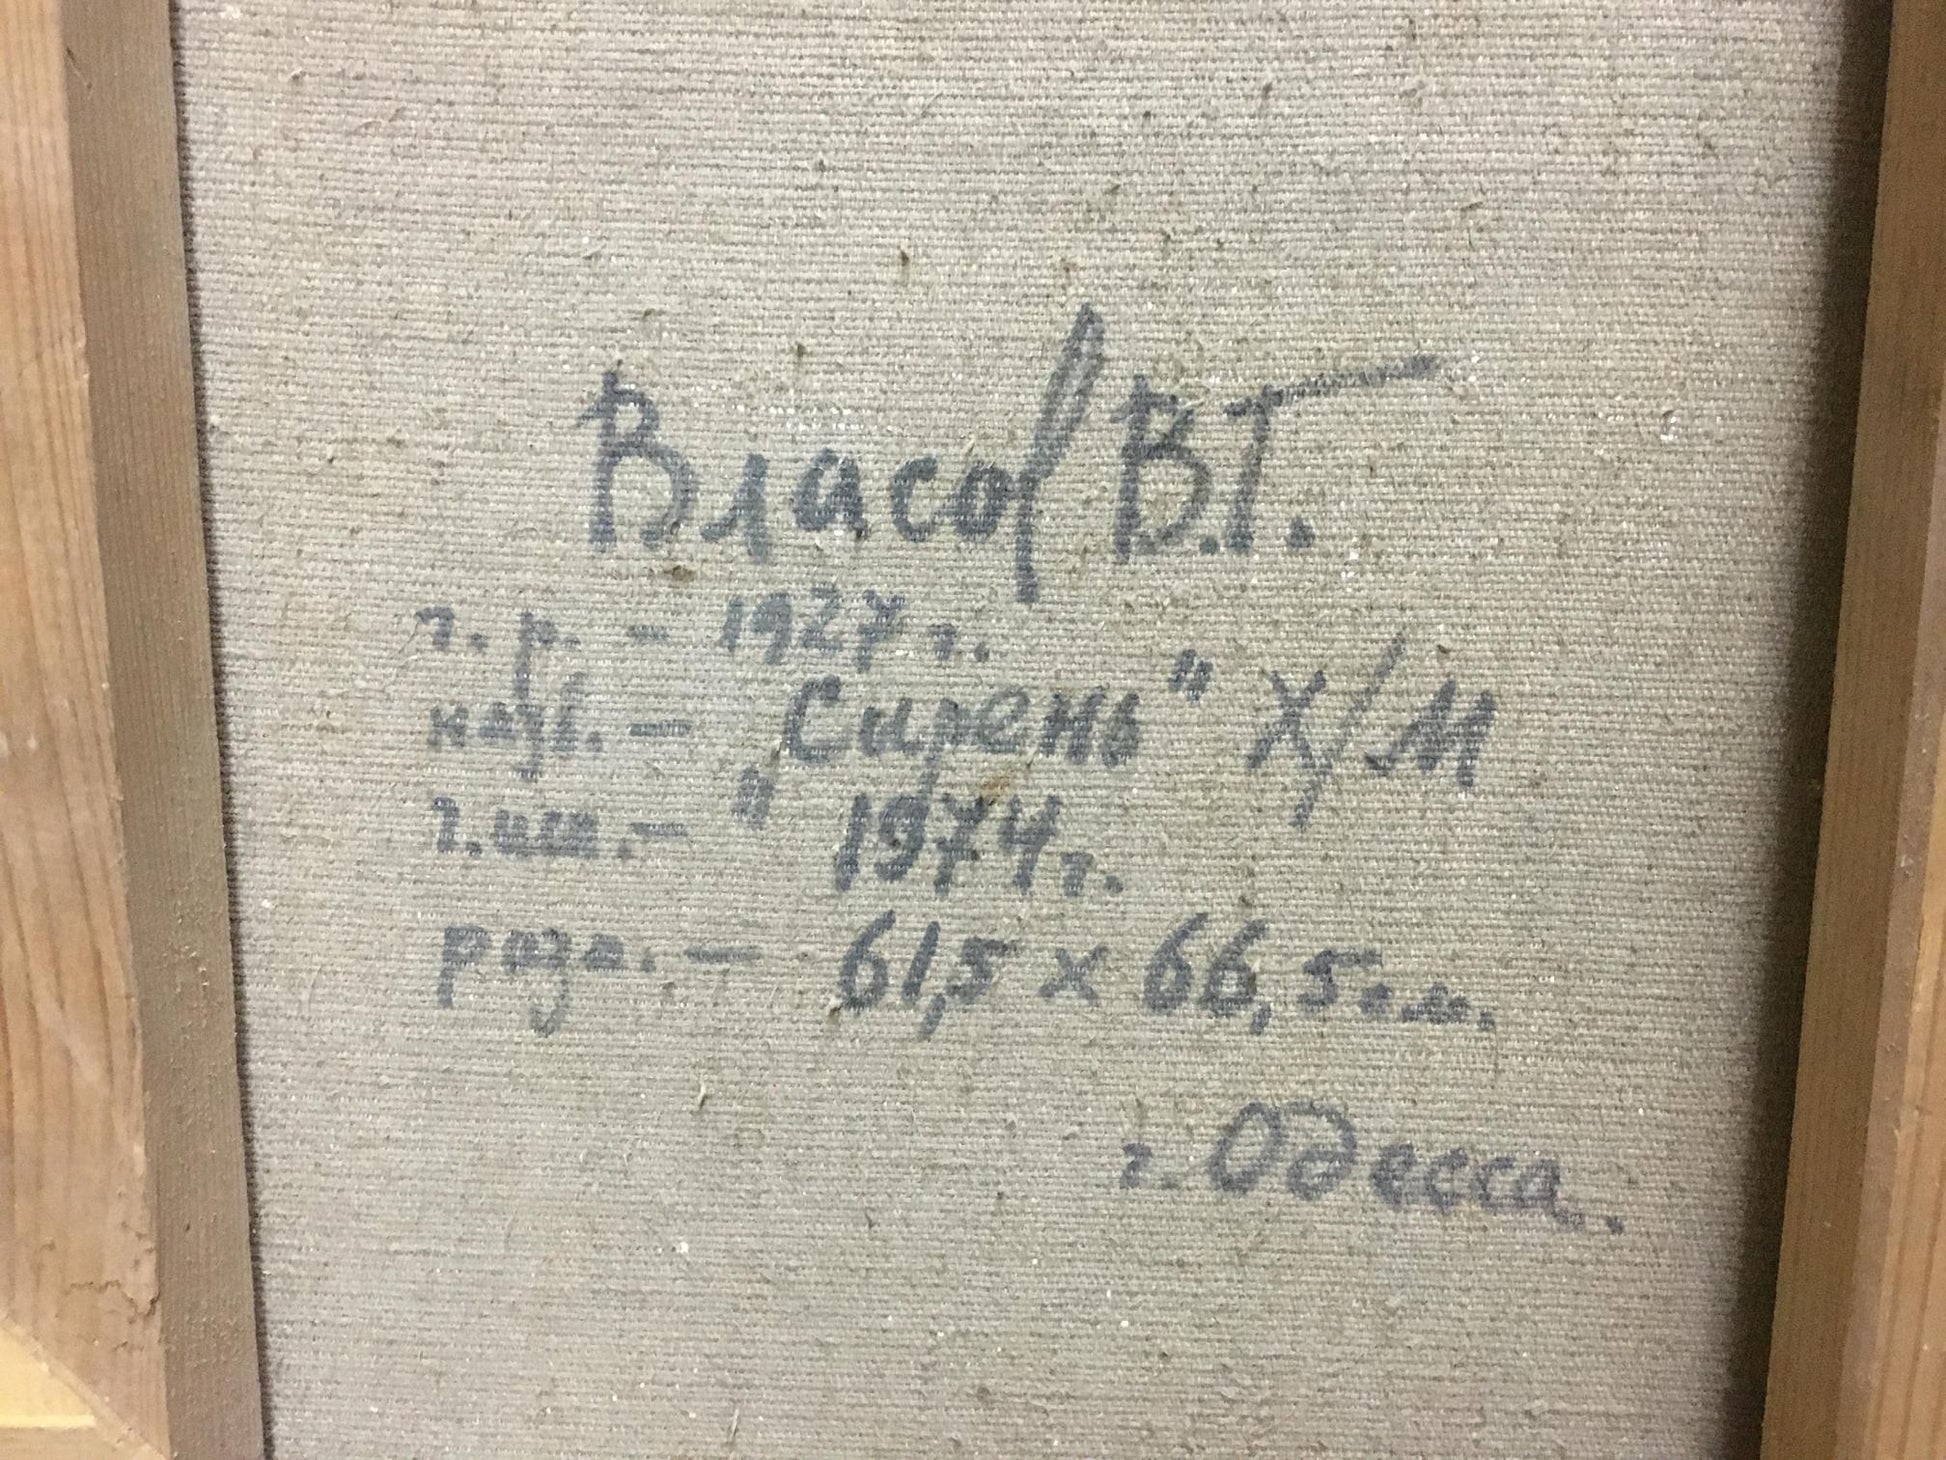 Власов В.Г.
г. р. – 1927 г.
назв. – „Сирень" Х/М
г. исп. – 1974 г.
разм. – 61,5 х 66,5 см.
г. Одесса.